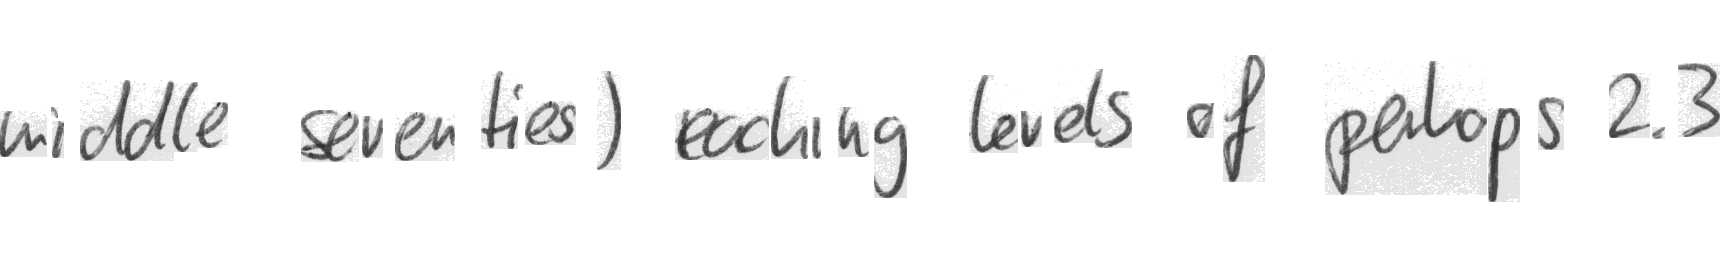 middle seventies) reaching levels of perhaps 2.3